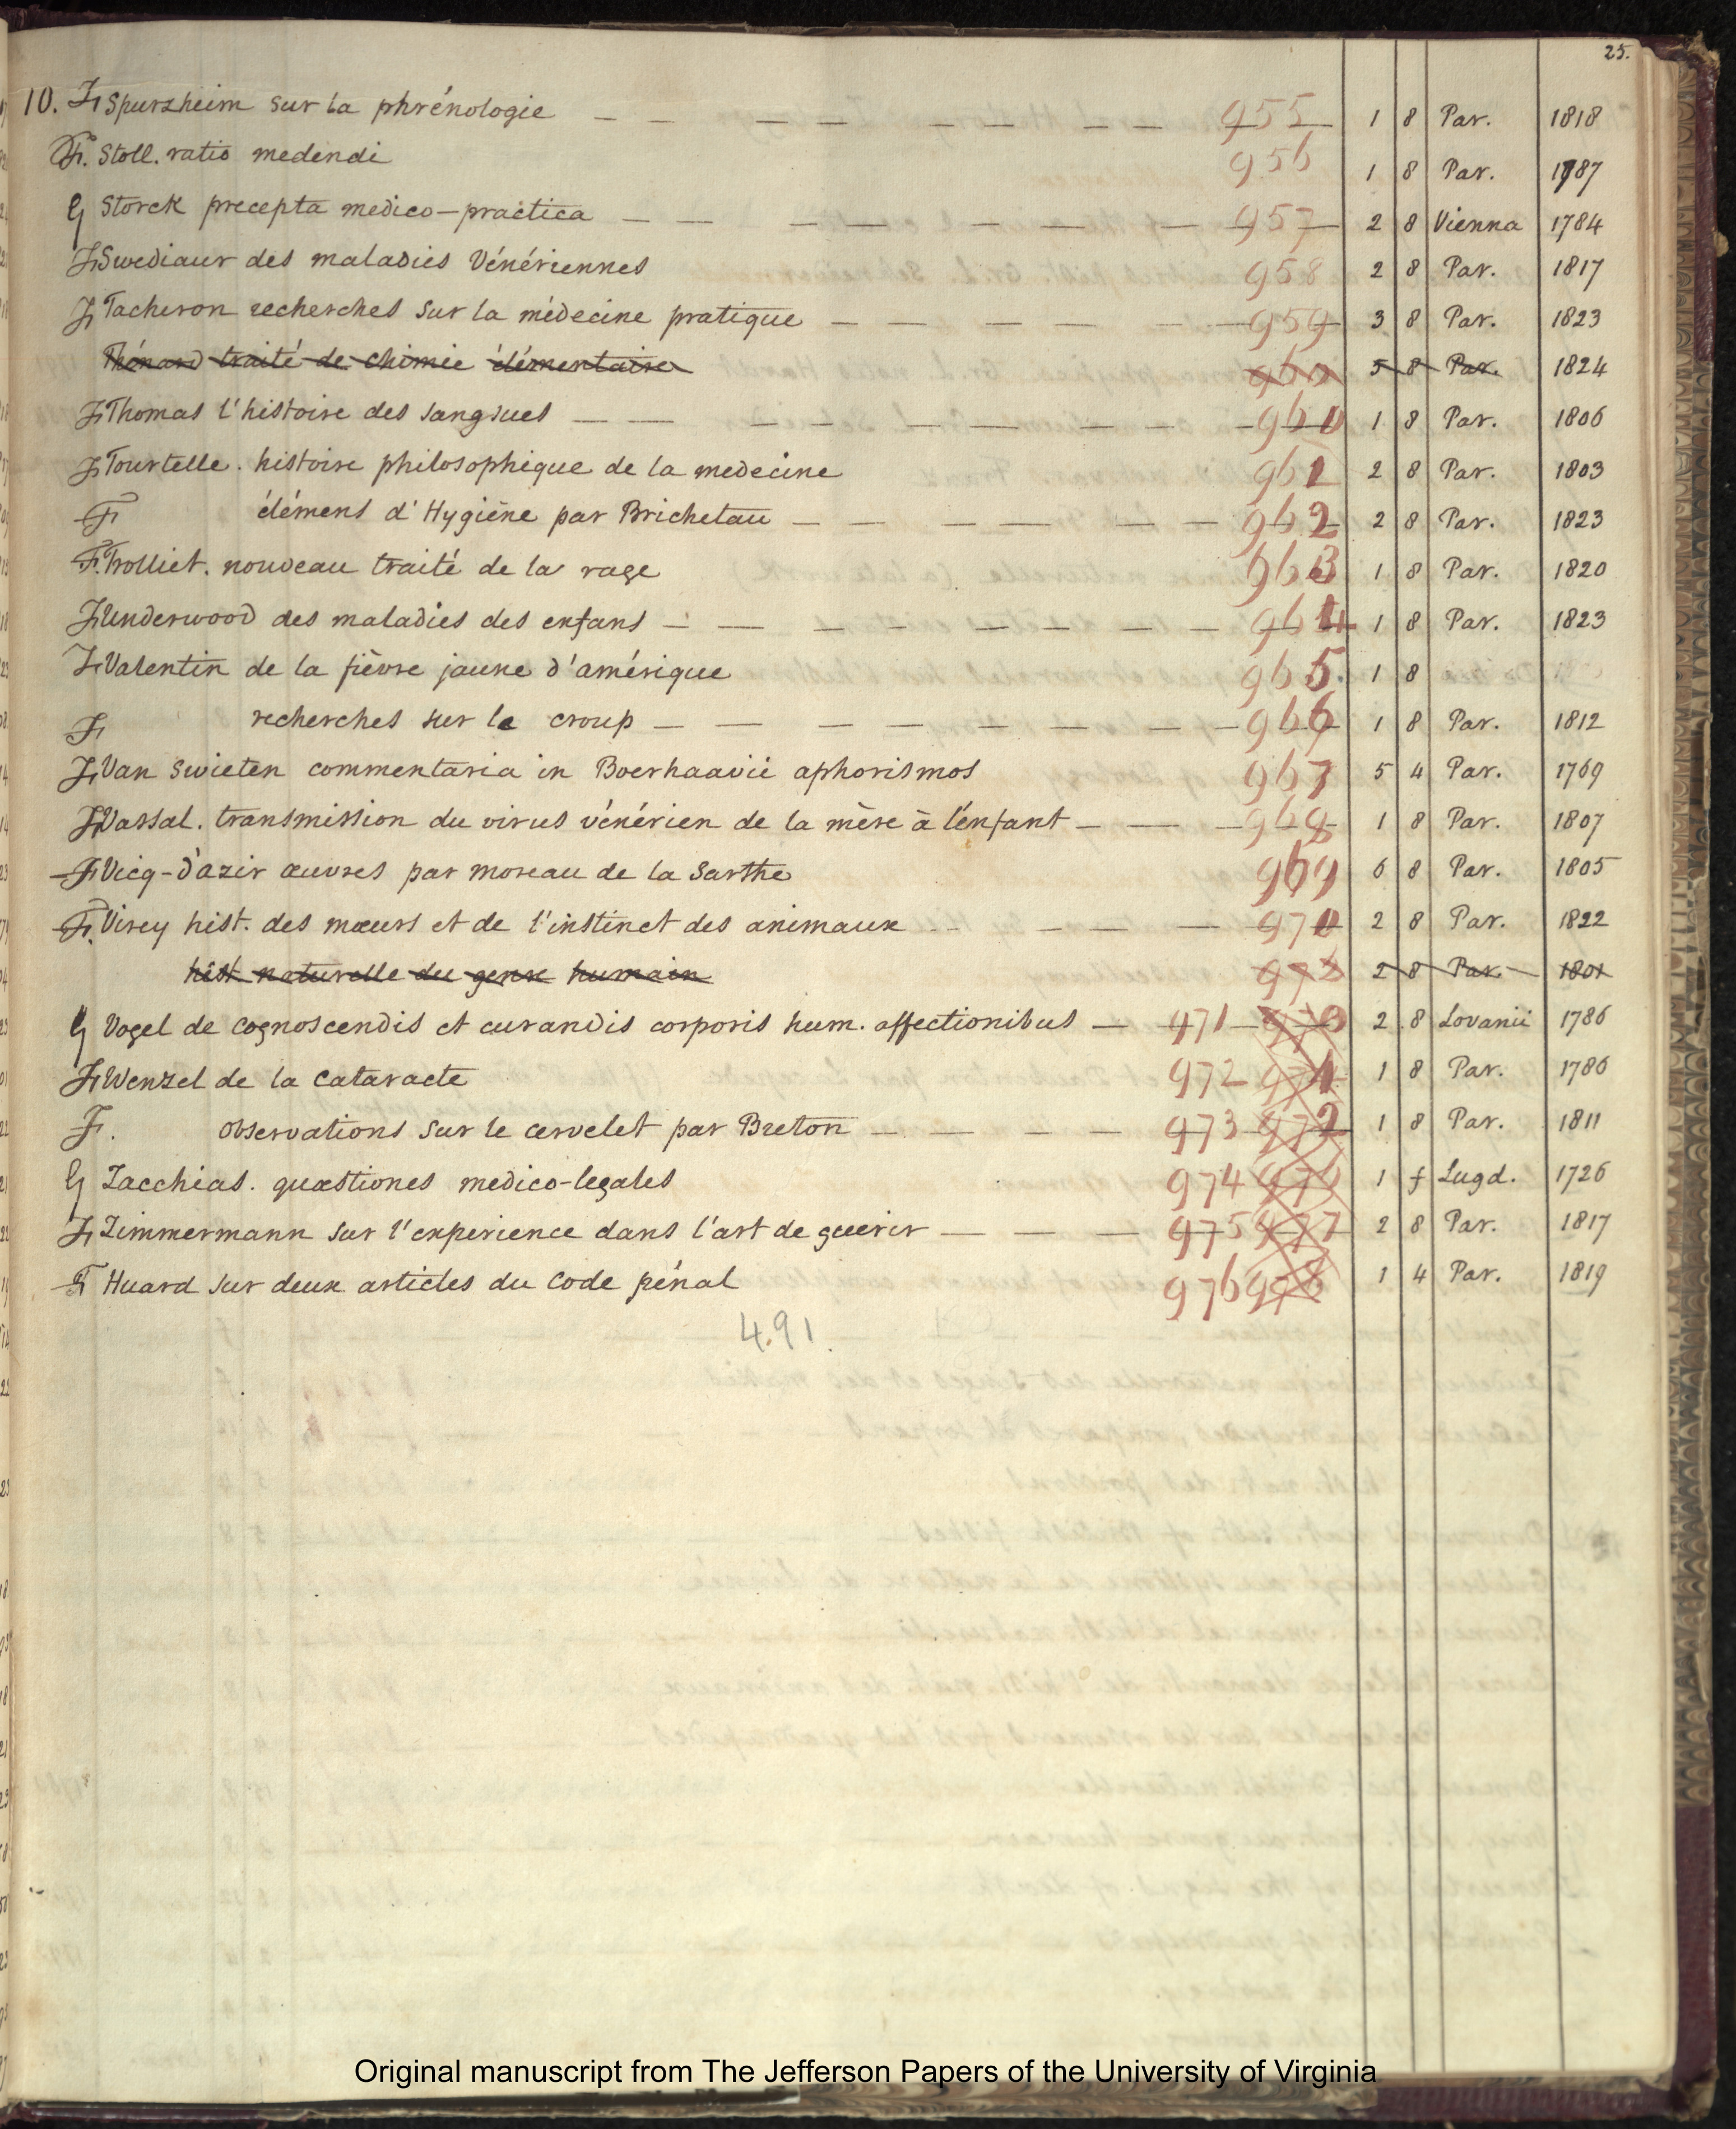 25.
10. F Spurzheim sur la phrénologie — — — — — — — — 955 1 8 Par. 1818
F. Stoll. ratio medendi 956 1 8 Par. 1787
G Storck precepta medico-practica — — — — — — — 957 2 8 Vienna 1784
F Swediaur des maladies Vénériennes 958 2 8 Par. 1817
F Tacheron recherches sur la médecine pratique — — — — — — 959 3 8 Par. 1823
Thénard traité de chimie élémentaire 960 5 8 Par. 1824
F Thomas l'histoire des sangsues — — — — — — — — 960 1 8 Par. 1806
F Tourtelle. histoire philosophique de la medecine 961 2 8 Par. 1803
F élémens d'Hygiène par Brichetau — — — — — — — 962 2 8 Par. 1823
F. Trolliet. nouveau traité de la rage 963 1 8 Par. 1820
F Underwood des maladies des enfans — — — — — — — 964 1 8 Par. 1823
F Valentin de la fièvre jaune d'amérique 965. 1 8
F recherches sur le croup — — — — — — — 966 1 8 Par. 1812
F Van Swieten commentaria in Boerhaavii aphorismos 967 5 4 Par. 1769
F Vassal. transmission du virus vénérien de la mère à l'enfant — — — 968 1 8 Par. 1807
F Vicq-d'azir œuvres par moreau de la Sarthe 969 6 8 Par. 1805
F. Virey hist. des mœurs et de l'instinct des animaux — — — — 970 2 8 Par. 1822
hist naturelle du genre humain 972 2 8 Par. 1801
G Vogel de cognoscendis et curandis corporis hum. affectionibus — 971 970 2 8 Lovanii 1786
F Wenzel de la cataracte 972 971 1 8 Par. 1786
F. observations sur le cervelet par Breton — — — — 973 972 1 8 Par. 1811
G Zacchias. quæstiones medico-legales 974 1 f Lugd. 1726
F Zimmermann sur l'experience dans l'art de guerir — — — 975 977 2 8 Par. 1817
F Huard sur deux articles du Code pénal 976 978 1 4 Par. 1819
4.91.
Original manuscript from The Jefferson Papers of the University of Virginia